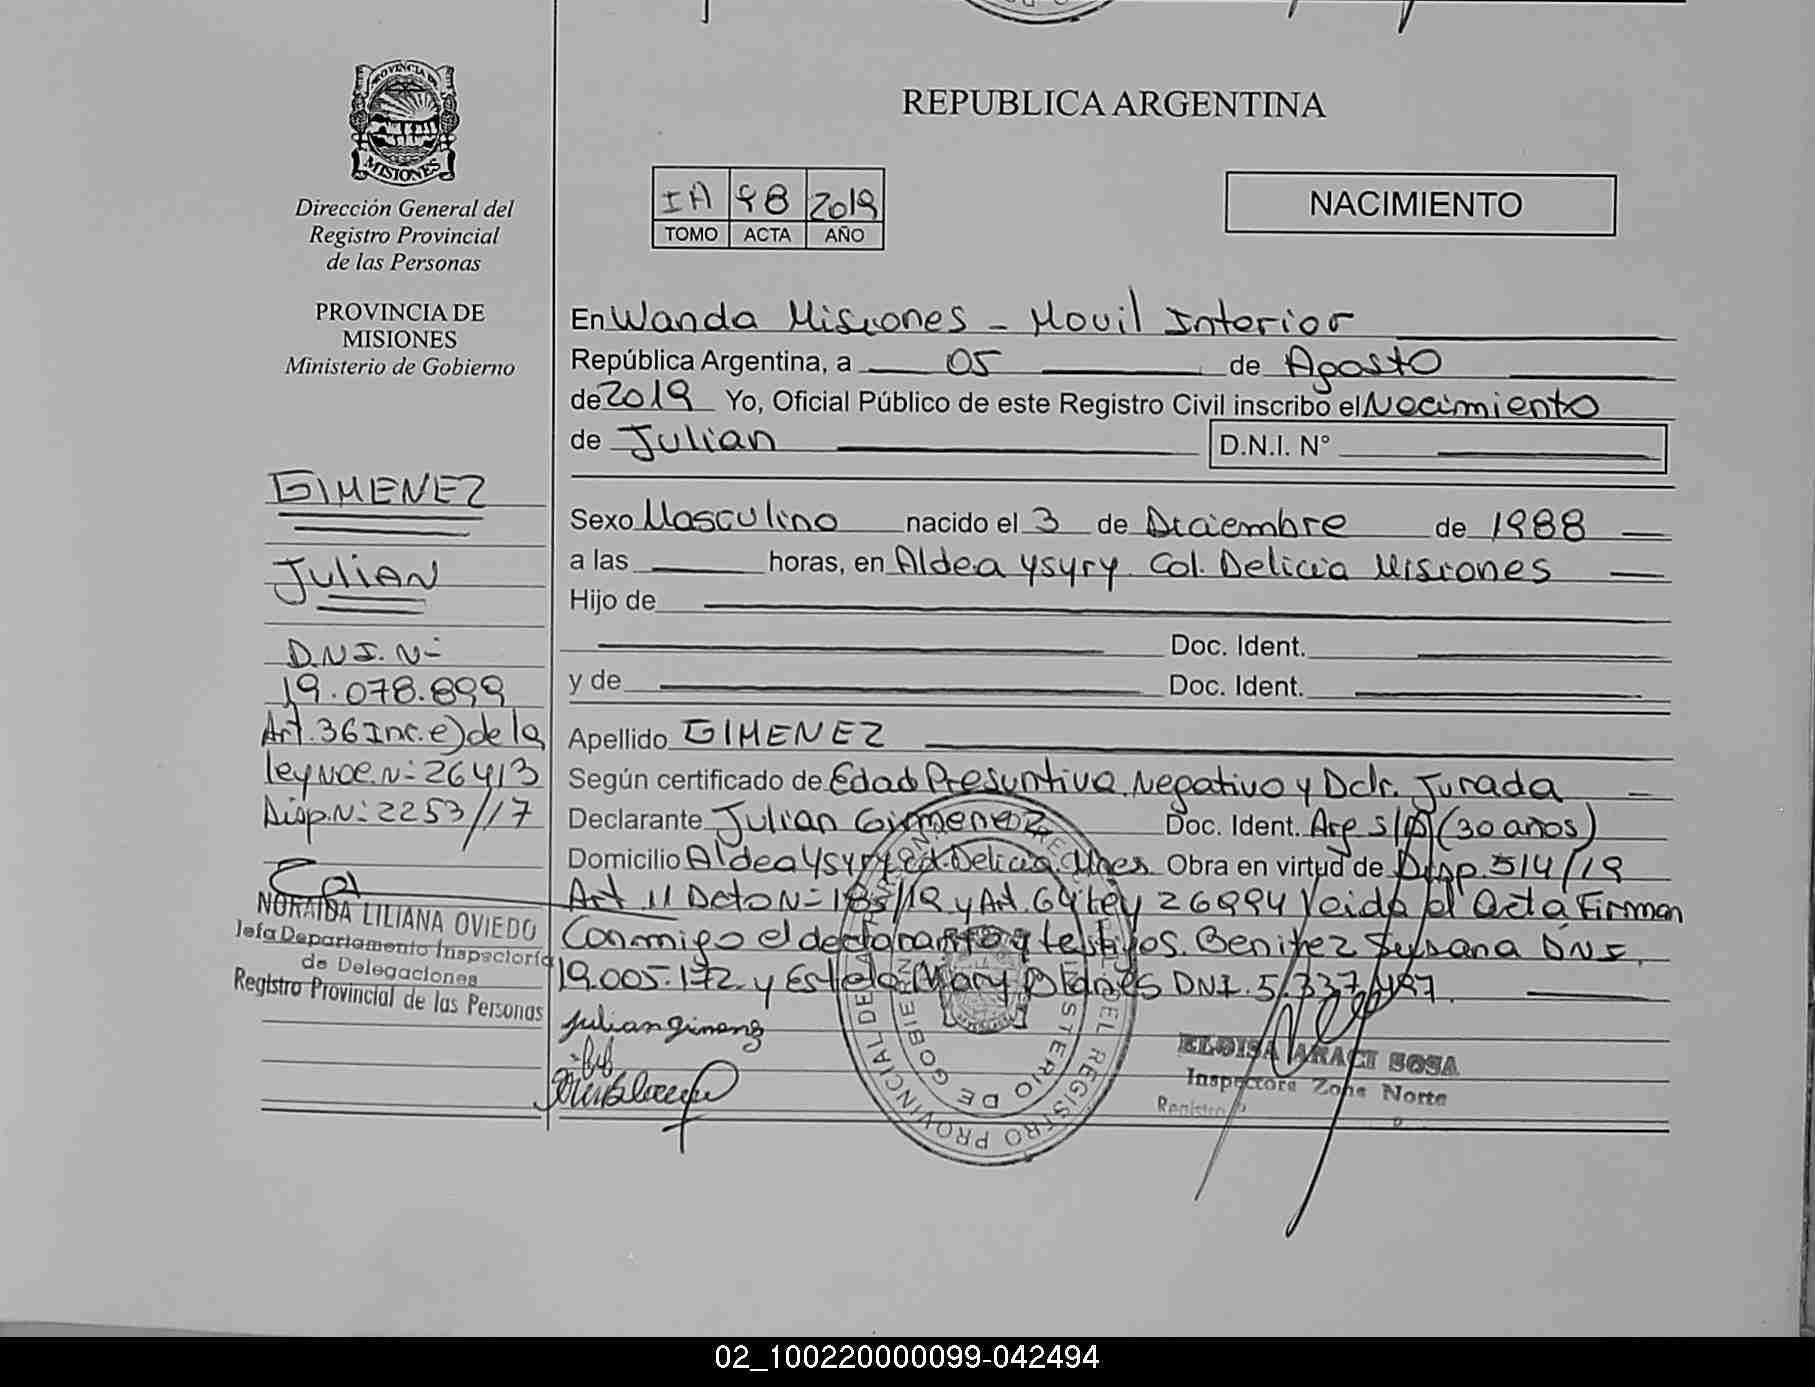 REPUBLICA ARGENTINA
PROVINCIA DE
MISIONES
Dirección General del
Registro Provincial
de las Personas
PROVINCIA DE
MISIONES
Ministerio de Gobierno
GIMENEZ
JULIAN
D.N.I. Nº
19.078.899
Art. 36 Inc. e) de la
ley NOE. Nº 26413
Disp. Nº 2253//17
NORAIDA LILIANA OVIEDO
Jefa Departamento Inspectoría
de Delegaciones
Registro Provincial de las Personas
IA 98 2019
TOMO ACTA AÑO
NACIMIENTO
En Wanda Misiones - Movil Interior
República Argentina, a 05 de Agosto
de 2019 Yo, Oficial Público de este Registro Civil inscribo el Nacimiento
de Julian D.N.I. N°
Sexo Masculino nacido el 3 de Diciembre de 1988
a las horas, en Aldea Ysyry Col. Delicia Misiones
Hijo de
Doc. Ident.
y de Doc. Ident.
Apellido GIMENEZ
Según certificado de Edad Presuntiva, Negativo y Dclr. Jurada
Declarante Julian Gimenez Doc. Ident. Arg S/D (30 años)
Domicilio Aldea Ysyry Col. Delicia Mnes Obra en virtud de Disp. 514/19
Art. 11 Dcto Nº 185/19 y Art. 64 Ley 26994 Leida el Acta Firman
Conmigo el declarante y testigos. Benitez Susana DNI.
19.005.172 y Estela Mary DNI. 5.337.
Julian Gimenez
ELOISA ARACI SOSA
Inspectora Zona Norte
Registro P
REGISTRO PROVINCIAL DE
MINISTERIO DE GOBIERNO
02_100220000099-042494